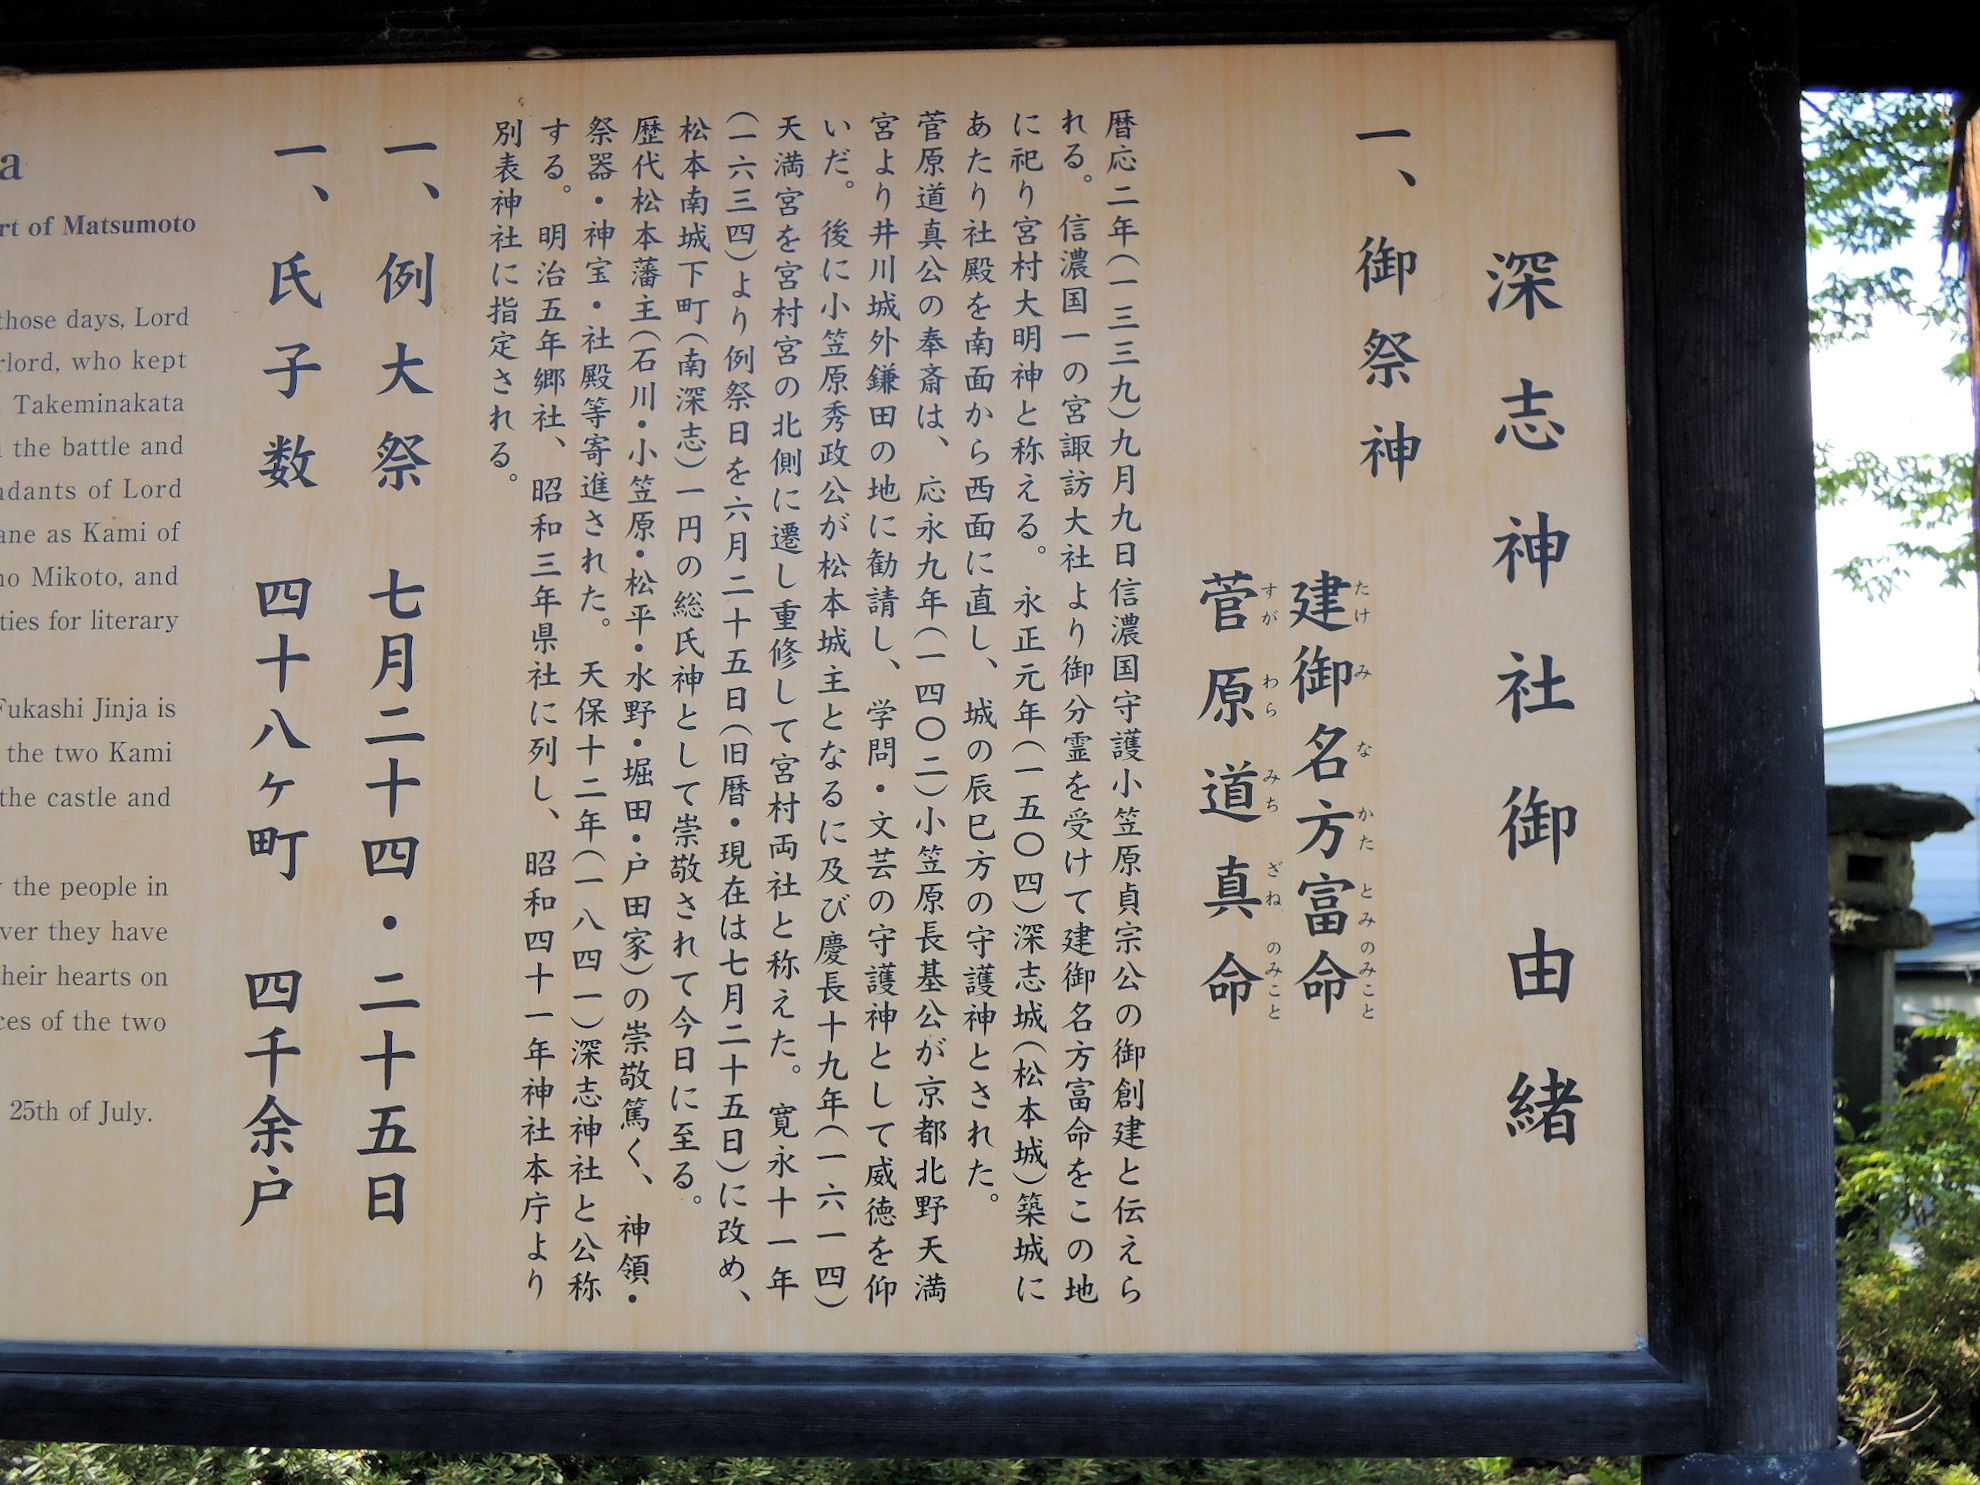 深志神社御由緒
一、御祭神
建御名方富命
たけみなかたとみのみこと
菅原道真命
すがわらみちざねのみこと
暦応二年(一三三九)九月九日信濃国守護小笠原貞宗公の御創建と伝えら
れる。信濃国一の宮諏訪大社より御分霊を受けて建御名方富命をこの地
に祀り宮村大明神と称える。永正元年(一五〇四)深志城(松本城)築城に
あたり社殿を南面から西面に直し、城の辰巳方の守護神とされた。
菅原道真公の奉斎は、応永九年(一四〇二)小笠原長基公が京都北野天満
宮より井川城外鎌田の地に勧請し、学問・文芸の守護神として威徳を仰
いだ。後に小笠原秀政公が松本城主となるに及び慶長十九年(一六一四)
天満宮を宮村宮の北側に遷し重修して宮村両社と称えた。寛永十一年
(一六三四)より例祭日を六月二十五日(旧暦・現在は七月二十五日)に改め、
松本南城下町(南深志)一円の総氏神として崇敬されて今日に至る。
歴代松本藩主(石川・小笠原・松平・水野・堀田・戸田家)の崇敬篤く、神領・
祭器・神宝・社殿等寄進された。天保十二年(一八四一)深志神社と公称
する。明治五年郷社、昭和三年県社に列し、昭和四十一年神社本庁より
別表神社に指定される。
一、例大祭 七月二十四・二十五日
一、氏子数 四十八ヶ町 四千余戸
a
rt of Matsumoto
those days, Lord
rlord, who kept
Takeminakata
the battle and
ndants of Lord
ane as Kami of
no Mikoto, and
ties for literary
Fukashi Jinja is
the two Kami
the castle and
y the people in
ver they have
heir hearts on
ces of the two
25th of July.